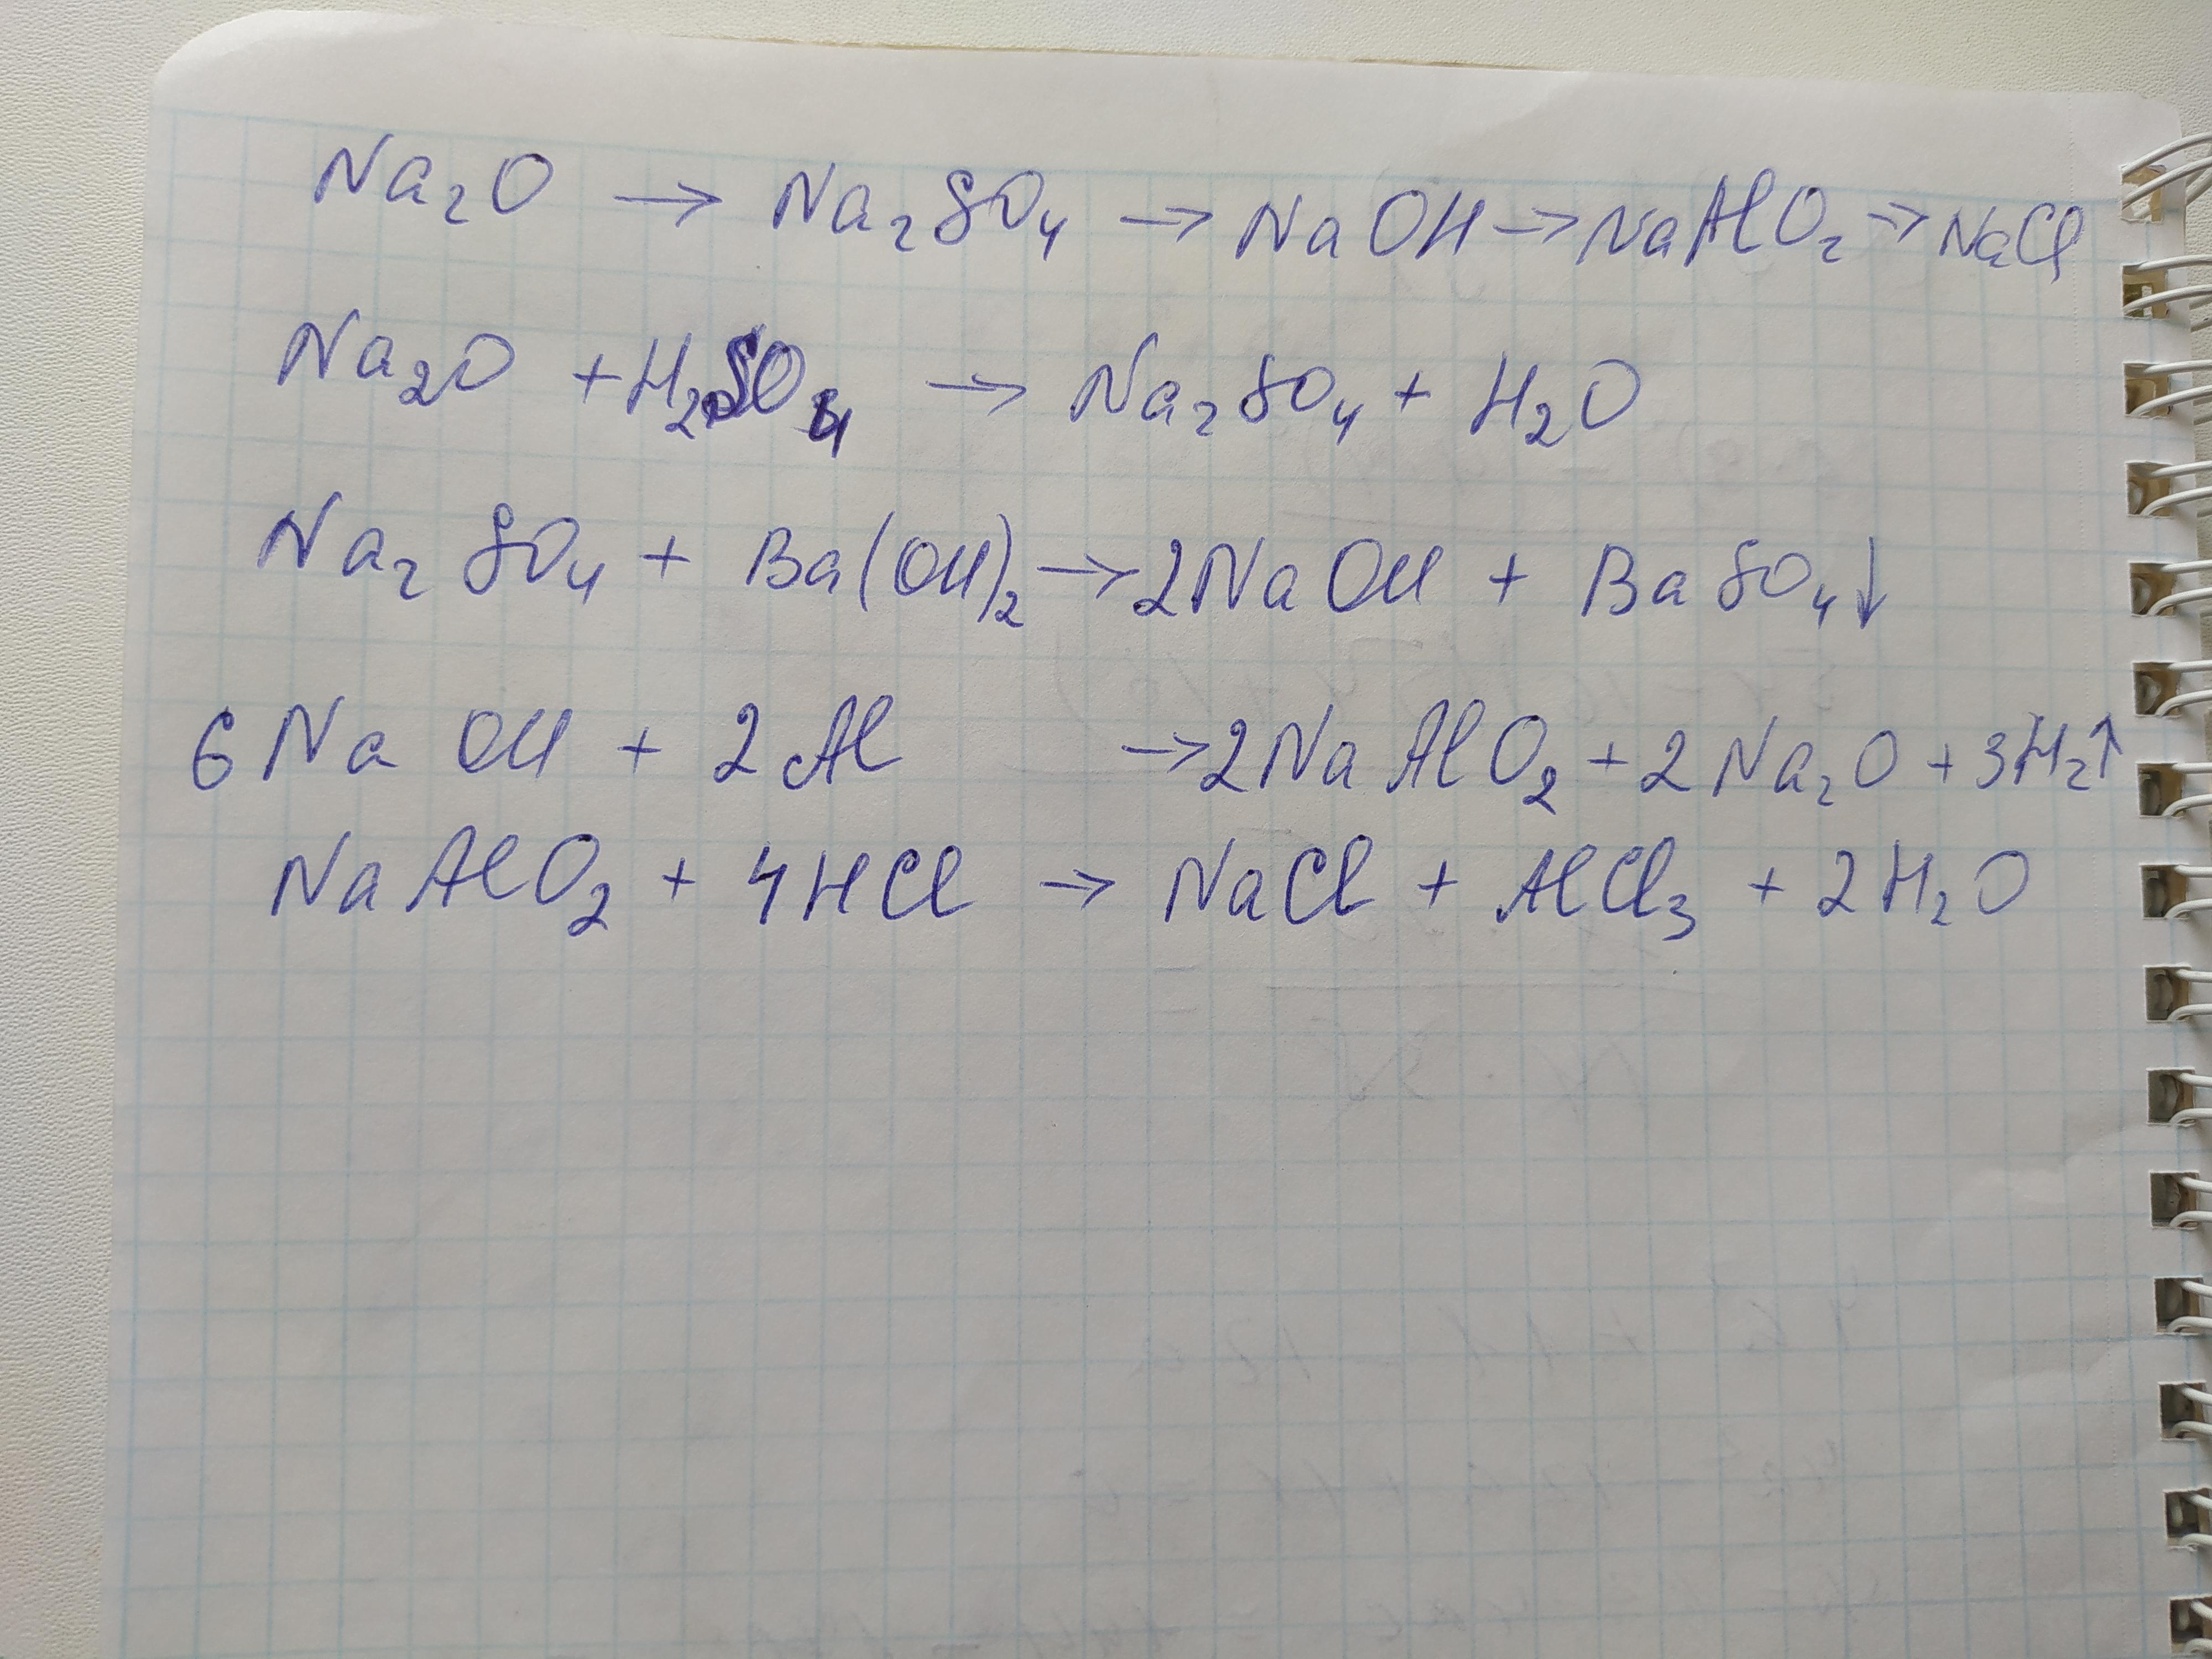 Na₂O → Na₂SO₄ → NaOH → NaAlO₂ → NaCl
Na₂O + H₂SO₄ → Na₂SO₄ + H₂O
Na₂SO₄ + Ba(OH)₂ → 2NaOH + BaSO₄↓
6NaOH + 2Al → 2NaAlO₂ + 2Na₂O + 3H₂↑
NaAlO₂ + 4HCl → NaCl + AlCl₃ + 2H₂O